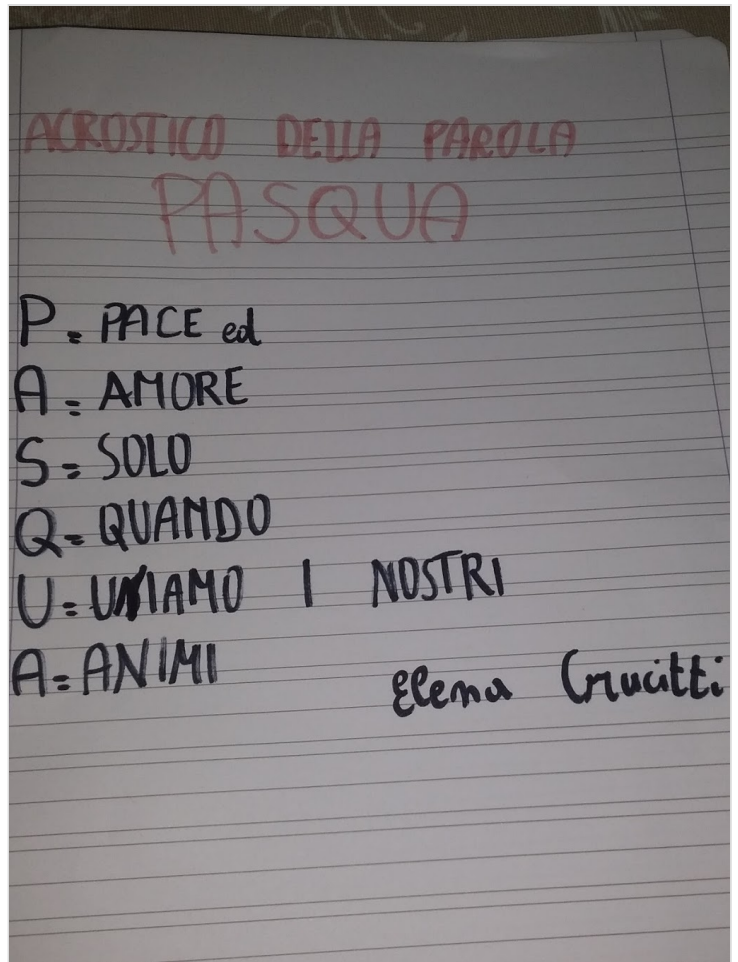 ACROSTICO DELLA PAROLA
PASQUA
P = PACE ed
A = AMORE
S = SOLO
Q = QUANDO
U = UNIAMO I NOSTRI
A = ANIMI
Elena Crucitti